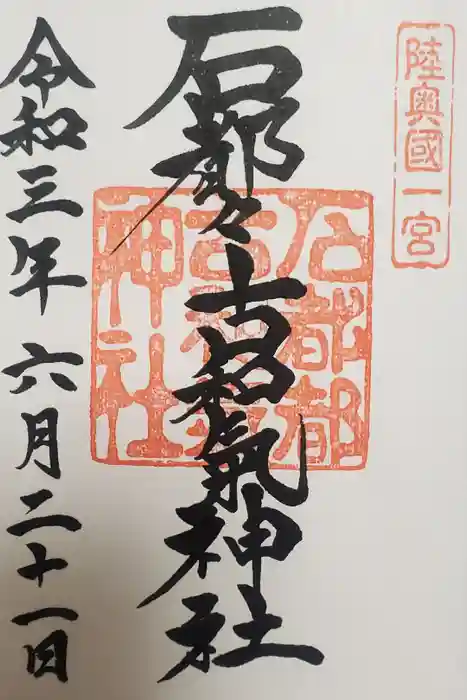 陸奥國一宮
石都々古和氣神社
石都都
古和氣
神社
令和三年六月二十一日